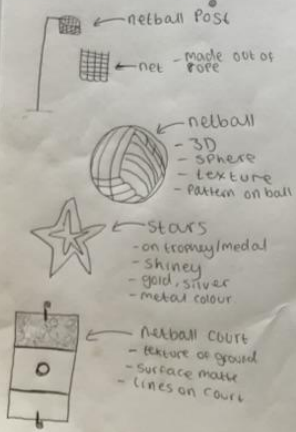 netball Post
net - made out of
rope
netball
- 3D
- sphere
- texture
- pattern on ball
stars
- on trophey/medal
- shiney
- gold, silver
- metal colour
netball court
- texture of ground
- surface matte
- lines on court